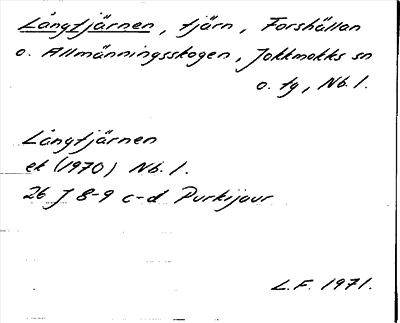 Långtjärnen, tjärn, Forshällan
o. Allmänningsskogen, Jokkmokks sn
o. tg, Nb. l.
Långtjärnen
ek (1970) Nb. l.
26 J 8-9 c-d Purkijaur
L.F. 1971.